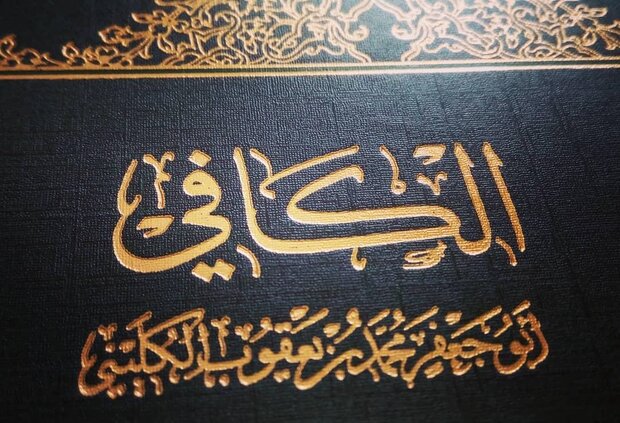 الكافي
أبو جعفر محمد بن يعقوب الكليني